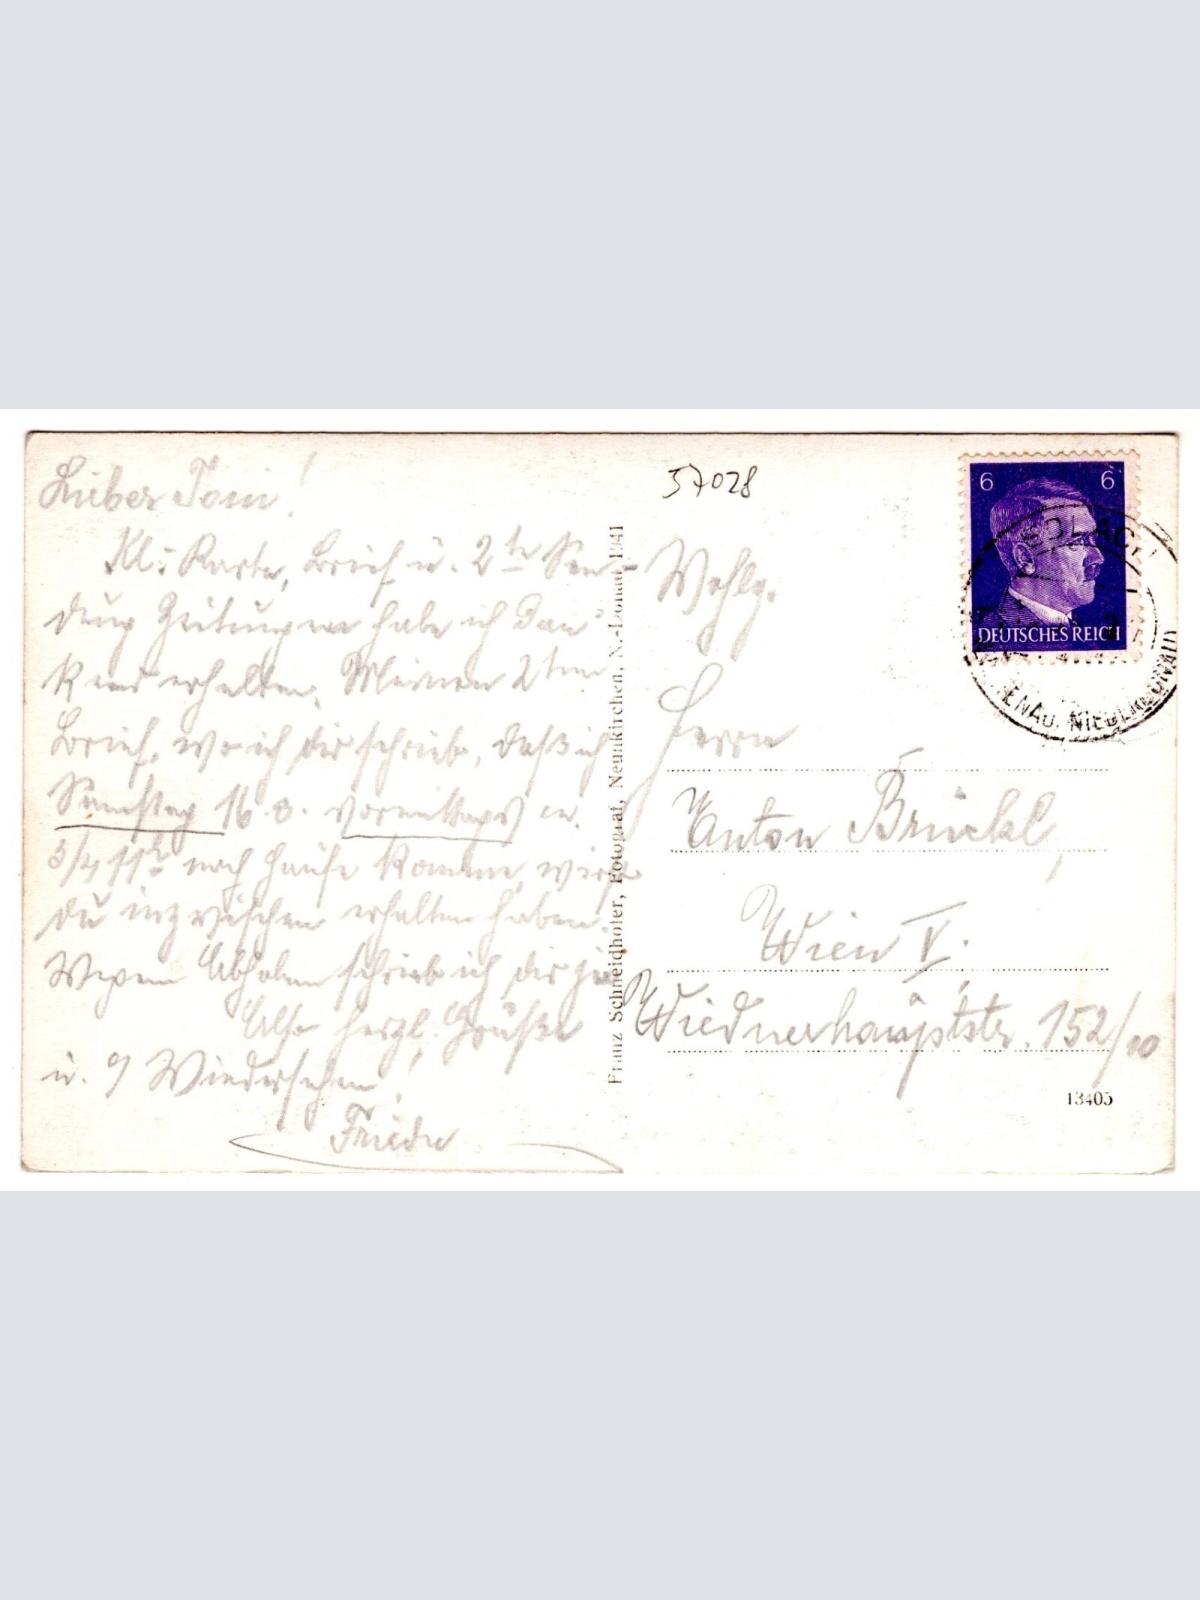 Lieber Toni!
Kl. Karte, Brief u. 2te Sen-
dung Zeitungen habe ich dan-
kend erhalten. Meinen 2ten
Brief, wo ich dir schrieb, daß ich
Samstag 16.8. vormittags um
3/4 11h nach Hause komme, wirst
du inzwischen erhalten haben.
Wegen Abholen schrieb ich dir ja
Also herzl. Grüße
u. Wiedersehen!
Friedl
Franz Schneidhofer, Fotograf, Neunkirchen, N.-Donau 1941
37028
6 6
DEUTSCHES REICH
EDLACH
ENAU, NIEDERDONAU
Wohlg.
Herrn
Anton Brückl,
Wien V.
Wiednerhauptstr. 152/10
13405